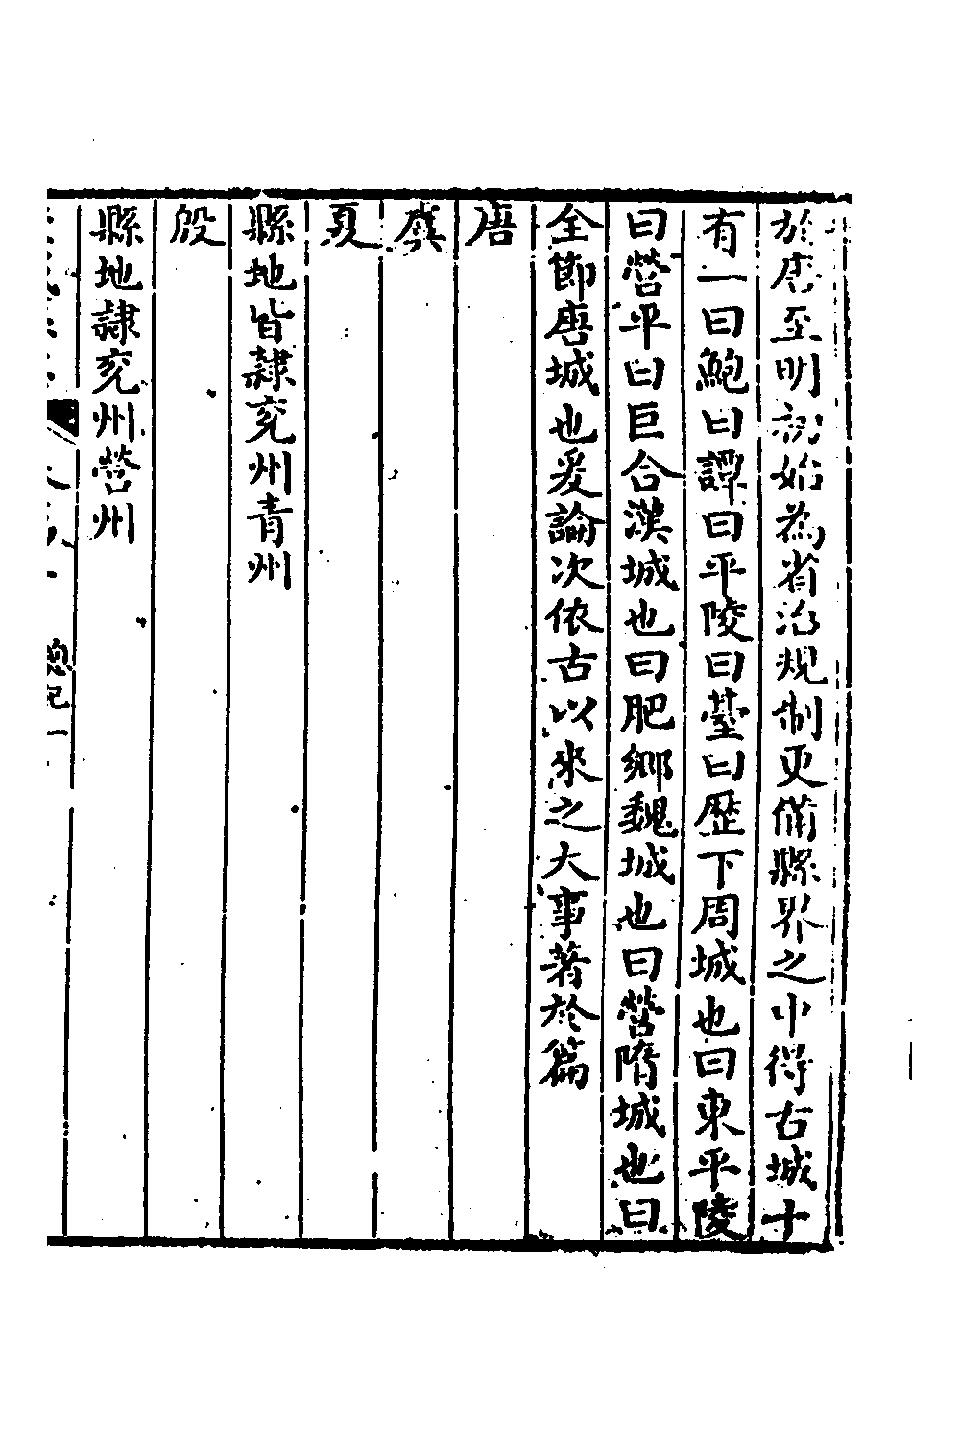 於唐至明初始為省治規制更備縣界之中得古城十
有一曰鮑曰譚曰平陵曰臺曰歷下周城也曰東平陵
曰營平曰巨合漢城也曰肥鄉魏城也曰營隋城也曰
全節唐城也爰論次依古以來之大事著於篇
唐
虞
夏
縣地皆隸兖州青州
殷
縣地隸兖州營州
總紀一